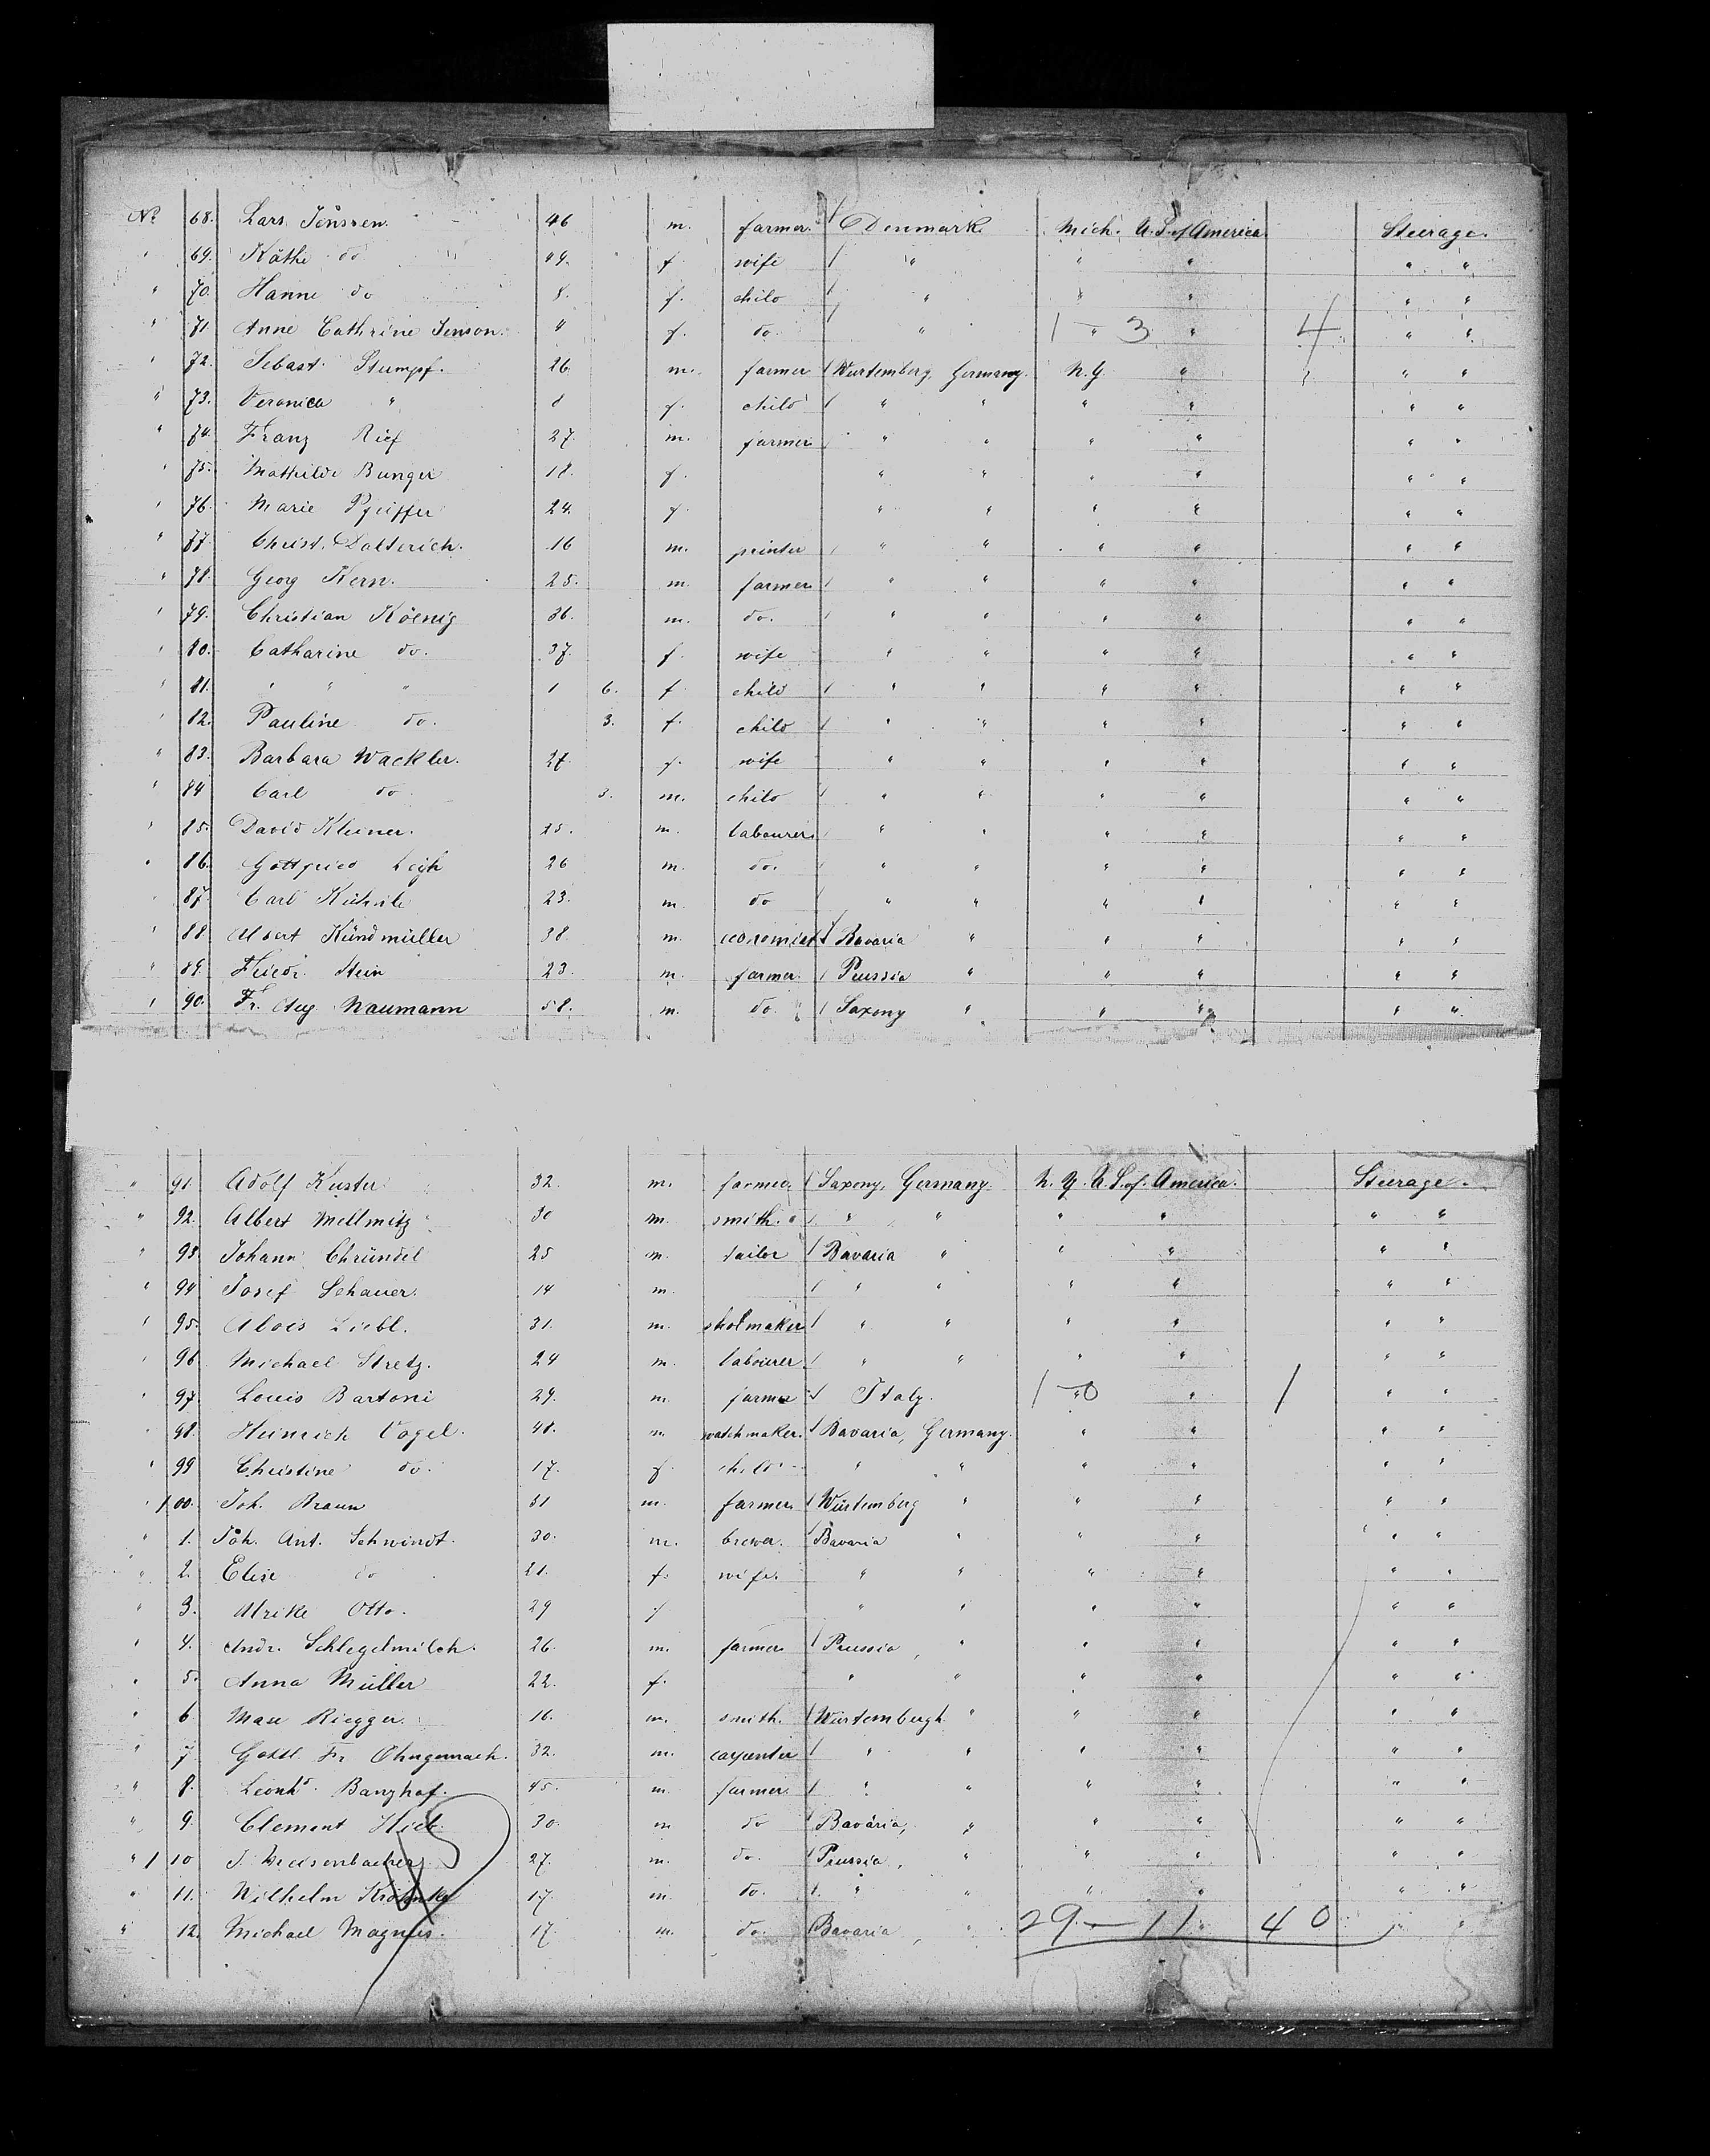 No. 68. Lars Jenssen. 46 m. farmer. Denmark Mich. U.S. of America. Steerage.
" 69. Käthe do 49. f. wife " " " " "
" 70. Hanne do 8. f. child " " " " "
" 71. Anne Cathrine Jenson. 4 f. do. " 1 - 3 " 4 " "
" 72. Sebast. Stumpf. 26. m. farmer Würtemberg, Germany. N.Y. " " "
" 73. Veronica " 8 f. child " " " " " "
" 74. Franz Rief 27. m. farmer " " " " " "
" 75. Mathilde Bunger 18. f. " " " " " "
" 76. Marie Pfeiffer 24. f. " " " " " "
" 77. Christ. Dolterich. 16 m. printer " " " " " "
" 78. Georg Kern. 25. m. farmer " " " " " "
" 79. Christian Köenig 36. m. do. " " " " " "
" 80. Catharine do. 37. f. wife " " " " " "
" 81. " " " 1 6. f. child " " " " " "
" 82. Pauline do. 3. f. child " " " " " "
" 83. Barbara Wackler. 27. f. wife " " " " " "
" 84 Carl do. 3. m. child " " " " " "
" 85. David Kleiner. 25. m. labourer " " " " " "
" 86. Gottfried 26 m. do. " " " " " "
" 87. Carl 23. m. do " " " " " "
" 88. Albert Kündmüller 38. m. economist Bavaria " " " " "
" 89. Friedr. Stein 23. m. farmer. Prussia " " " " "
" 90. Fr. Aug Naumann 58. m. do. Saxony " " " " "
" 91. Adolf Kuster 32. m. farmer. Saxony, Germany. N.Y. U.S. of America. Steerage.
" 92. Albert Mellmitz 30 m. smith. " " " " " "
" 93. Johann Chründel 25 m. tailor Bavaria " " " " "
" 94 Josef Schauer. 14 m. " " " " " "
" 95. Alois Liebl. 31. m. shoemaker " " " " " "
" 96 Michael Stretz. 24 m. labourer " " " " " "
" 97. Louis Bartoni 29. m. farmer Italy. 1 - 0 " 1 " "
" 98. Heinrich Vogel. 48. m. watchmaker. Bavaria, Germany. " " " "
" 99 Christine do. 17. f. child " " " " " "
" 100. Joh. Braun 31 m. farmer. Würtemberg " " " " "
" 1. Joh. Ant. Schwindt. 30. m. brewer. Bavaria " " " " "
" 2. Elise do 21. f. wife. " " " " " "
" 3. Ulrike Otto. 29 f " " " " " "
" 4. Andr. Schlegelmilch. 26. m. farmer Prussia, " " " " "
" 5. Anna Müller 22. f. " " " " " "
" 6 Max Riegger. 16. m. smith. Würtembergh " " " " "
" 7 Gottl. Fr. Ohngemach. 32. m. carpenter " " " " " "
" 8. Leonhd. Banzhaf. 45. m. farmer. " " " " " "
" 9. Clement 30. m do Bavaria, " " " " "
" 110 J. Weisenbacher 27. m. do. Prussia, " " " " "
" 11. Wilhelm 17. m. do. " " " " " "
" 12. Michael Magnus. 17. m. do. Bavaria, " 29 - 11 40 " "